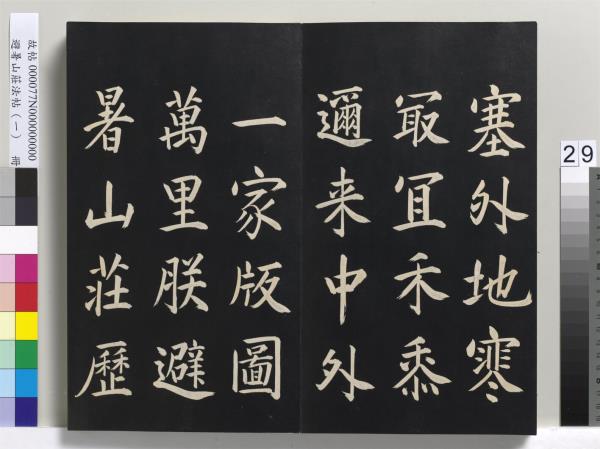 塞外地寒
冣冝禾黍
邇来中外
一家版圖
萬里朕避
暑山莊歷
故帖 000077N000000000
避暑山莊法帖(一) 冊
29